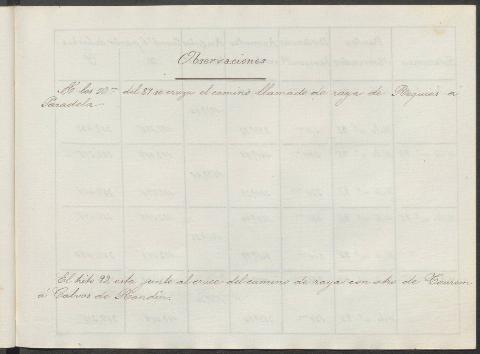 Observaciones
A los 20 m del 89 se cruza el camino llamado de raya de Requiás á
Paradela.
El hito 92 esta junto al cruce del camino de raya con otro de Tourem
á Calvos de Randin.